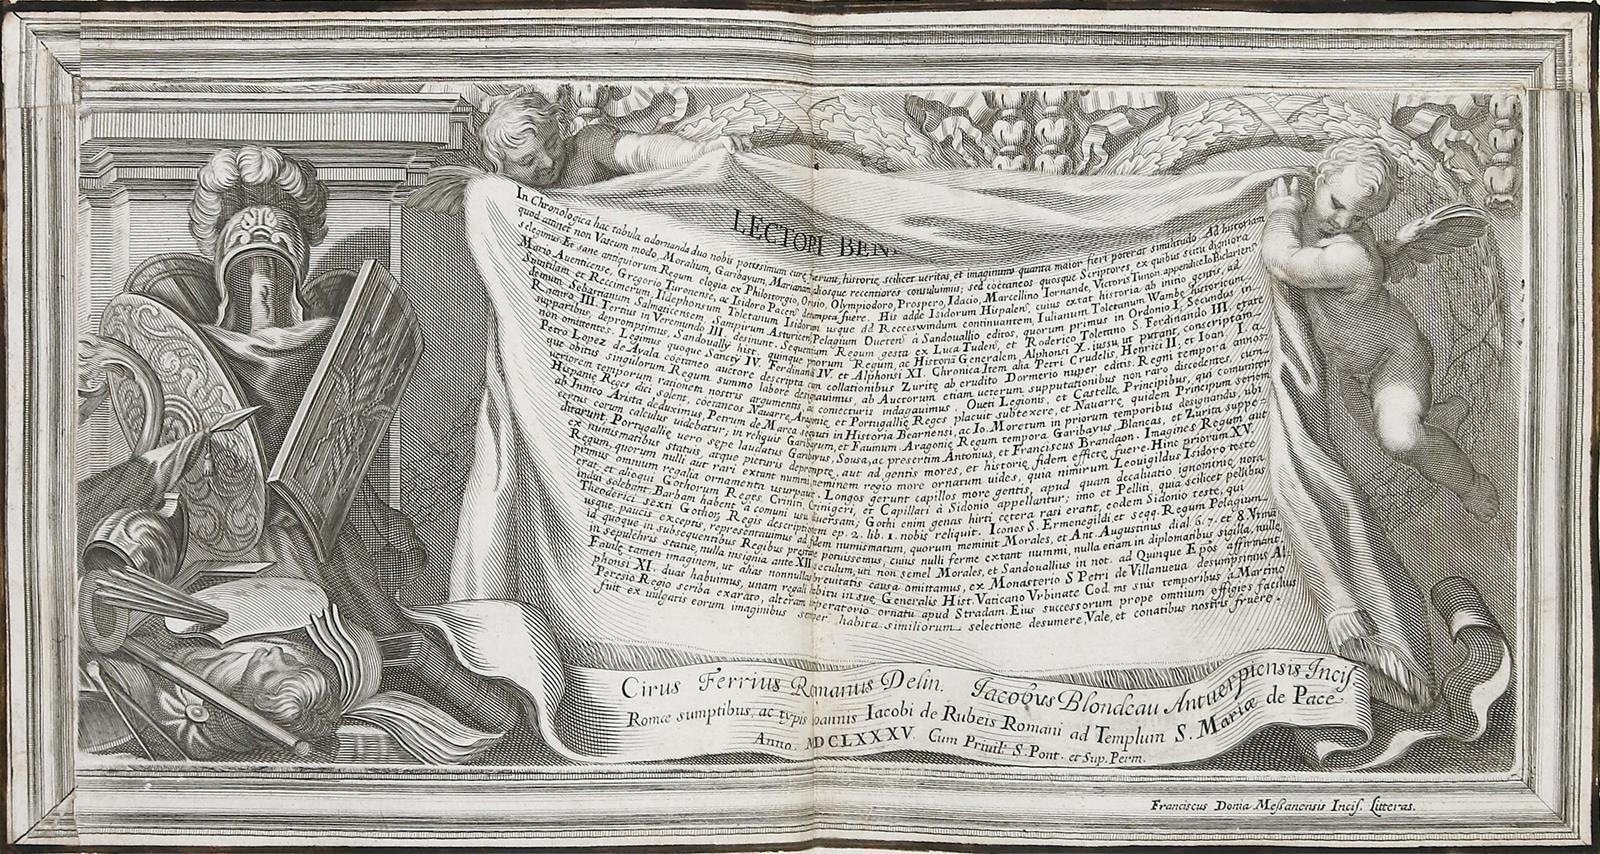 LECTORI BEN
In Chronologica hac tabula adornanda duo nobis potissimum curæ fuerunt, historiæ scilicet veritas, et imaginum quanta maior fieri poterat similitudo. Ad historiam
quod attinet non Vaseum modo, Moralium, Garibayum, Marianam aliosque recentiores consuluimus; sed coetaneos quosque Scriptores, ex quibus scitu digniora
selegimus Et sane antiquorum Regum elogia ex Philostorgio, Orosio, Olympiodoro, Prospero, Idacio, Marcellino Iornande, Victoris Tunon. appendice Io Biclarien
Mario Auenticense, Gregorio Turonense, ac Isidoro Pacen deprompta fuere. His adde Isidorum Hispalen, cuius extat historia ab initio gentis, ad
Suintilam et Reccimerum, Ildephonsum Toletanum Isidorum usque ad Recceswindum continuantem, Iulianum Toletanum Wambæ historicum
demum Sebastianum Salmaticensem, Sampirum Asturicen Pelagium Oueten à Sandouallio editos, quorum primus in Ordonio I. Secundus in
Ramiro III Tertius in Veremundo III desinunt. Sequentium Regum gesta ex Luca Tuden, et Roderico Toletano S. Ferdinando III. ætate
supparibus, deprompsimus, Sandoually hist. quinque priorum Regum, ac Historia Generalem, Alphonsi X. iussu, ut putant, conscriptam
non omittentes. Legimus quoque Sancty IV Ferdinandi IV et Alphonsi XI. Chronica Item alia Petri Crudelis, Henrici II, et Ioan. I. a
Petro Lopez de Ayala coetaneo auctore descripta cum collationibus Zuritæ ab erudito Dormerio nuper editis. Regni tempora annos
que obitus singulorum Regum summo labore designauimus, ab Auctorum etiam ueterum supputationibus non raro discedentes, cum
ueriorem temporum rationem nostris argumentis, ac coniecturis indagauimus. Oueti Legionis, et Castellæ Principibus, qui comuniter
Hispaniæ Reges dici solent, coetaneos Nauarræ, Aragoniæ, et Portugalliæ Reges placuit subtexere, et Nauarræ quidem Principum seriem
ab Iunico Arista deduximus, Petrum de Marca sequuti in Historia Bearnensi, ac Io. Moretum in priorum temporibus designandis, ubi
certus eorum calculus uidebatur, in reliquis Garibayum, et Fauinum Aragoniæ Regum tempora Garibayus, Blancas, et Zurita suppe
ditarunt, Portugalliæ uero sæpe laudatus Garibayus, Sousa, ac præsertim Antonius, et Franciscus Brandaon. Imagines Regum aut
ex numismatibus status, atque picturis depromptæ, aut ad gentis mores, et historiæ fidem effictæ fuere Hinc priorum XV
Regum, quorum nulli aut rari extant nummi, neminem regio more ornatum uides, quia nimirum Leouigildus Isidoro teste
primus omnium regalia ornamenta usurpauit Longos gerunt capillos more gentis, apud quam decaluatio ignominiæ nota
erat, et alioqui Gothorum Reges Criniti, Crinigeri, et Capillari à Sidonio appellantur; imo et Pelliti, quia scilicet pellibus
indui solebant. Barbam habent à comuni usu diuersam, Gothi enim genas hirti cætera rasi erant, eodem Sidonio teste, qui
Theoderici sexti Gothor. Regis descriptionem ep. 2. lib. 1. nobis reliquit. Iconos S. Ermenegildi et seqq. Regum Pelagium
usque, paucis exceptis, repræsentauimus ad fidem numismatum, quorum meminit Morales, et Ant. Augustinus dial. 6. 7. et 8 Vrma
id quoque in subsequentibus Regibus præstare potuissemus, cuius nulli ferme extant nummi, nulla etiam in diplomatibus sigilla, nullæ,
in sepulchris statuæ, nulla insignia ante XII sæculum, uti non semel Morales, et Sandouallius in not. ad Quinque Epos affirmant.
Fauilæ tamen imaginem, ut alias nonnullas breuitatis causa omittamus, ex Monasterio S Petri de Villanueua desumpsimus Al
phonsi XI. duas habuimus, unam regali habitu in suæ Generalis Hist. Vaticano Vrbinate Cod. ms suis temporibus à Martino
Peresio Regio scriba exarato, alteram imperatorio ornatu apud Stradam. Eius successorum prope omnium effigies facilius
fuit ex uulgatis eorum imaginibus semper habita similiorum selectione desumere Vale, et conatibus nostris fruere.
Cirus Ferrius Romanus Delin. Iacobus Blondeau Antuerpiensis Incis
Romæ sumptibus, ac typis Ioannis Iacobi de Rubeis Romani ad Templum S. Mariæ de Pace
Anno. MDCLXXXV Cum Priuil. S. Pont. et Sup. Perm.
Franciscus Donia Messanensis Incis. Litteras.